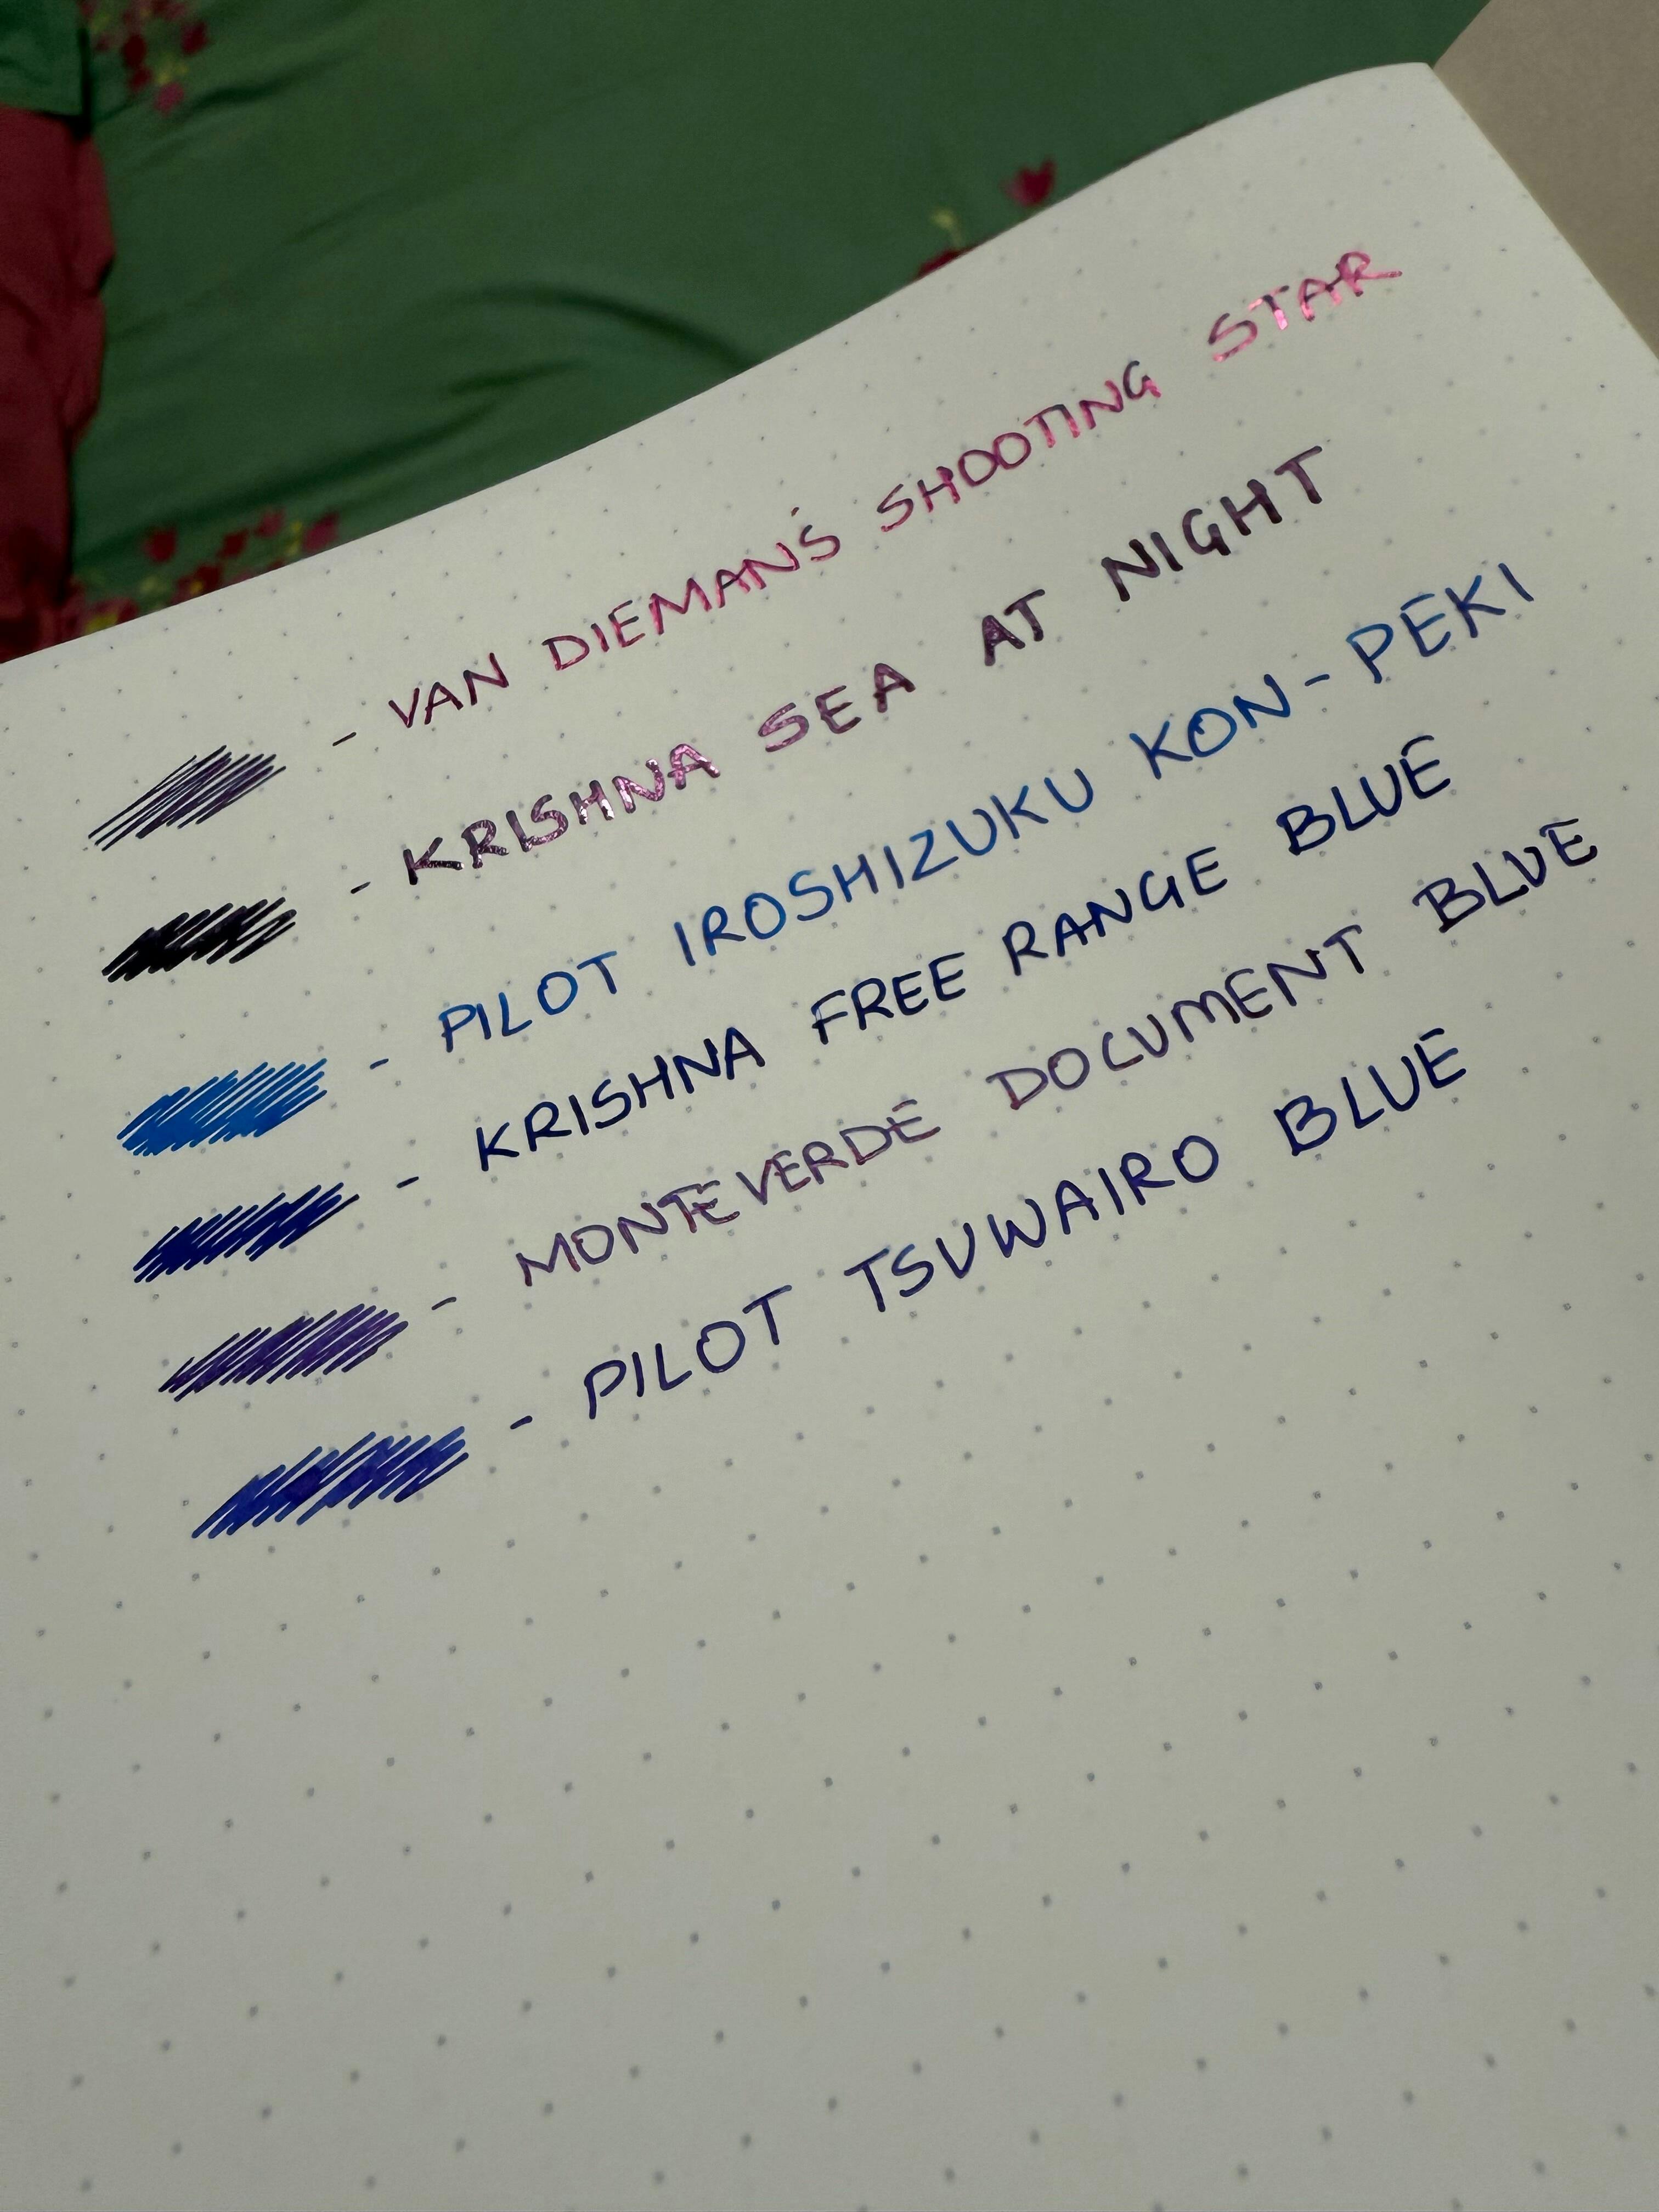 - VAN DIEMAN'S SHOOTING STAR
- KRISHNA SEA AT NIGHT
- PILOT IROSHIZUKU KON-PEKI
- KRISHNA FREE RANGE BLUE
- MONTEVERDE DOCUMENT BLUE
- PILOT TSUWAIRO BLUE